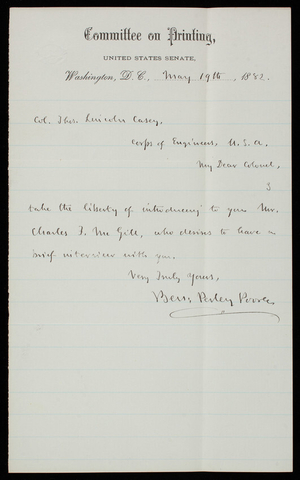 Committee on Printing,
UNITED STATES SENATE,
Washington, D. C., May 19th, 1882.
Col. Thos. Lincoln Casey,
Corps of Engineers, U. S. A.
My Dear Colonel,
I
take the liberty of introducing to you Mr.
Charles F. McGill, who desires to have a
brief interview with you.
Very Truly Yours,
Ben: Perley Poore